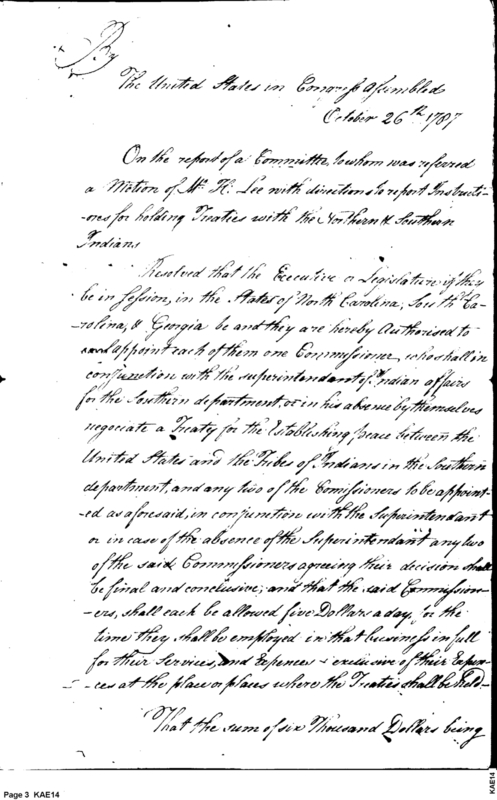 By
The United States in Congress assembled
October 26th 1787
On the report of a Committee, to whom was referred
a Motion of Mr. H. Lee with directions to report Instructi-
-ons for holding Treaties with the Northern & Southern
Indians
Resolved that the Executive or Legislature if they
be in Session, in the States of North Carolina, South Ca-
-rolina, & Georgia be and they are hereby Authorised to
appoint each of them one Commissioner, who shall in
conjunction with the superintendant of Indian affairs
for the Southern department, or in his absence by themselves
negociate a Treaty for the Establishing peace between the
United States and the Tribes of Indians in the Southern
department, and any two of the Comissioners to be appoint-
-ed as aforesaid, in conjunction with the Superintendant
or in case of the absence of the Superintendant any two
of the said Commissioners agreeing their decision shall
be final and conclusive; and that the said Commission-
-ers, shall each be allowed five Dollars a day, for the
time they shall be employed in that business in full
for their Services, and Expences exclusive of their Expen-
-ces at the place or places where the Treaties shall be held-
That the sum of six Thousand Dollars being
Page 3 KAE14
KAE14